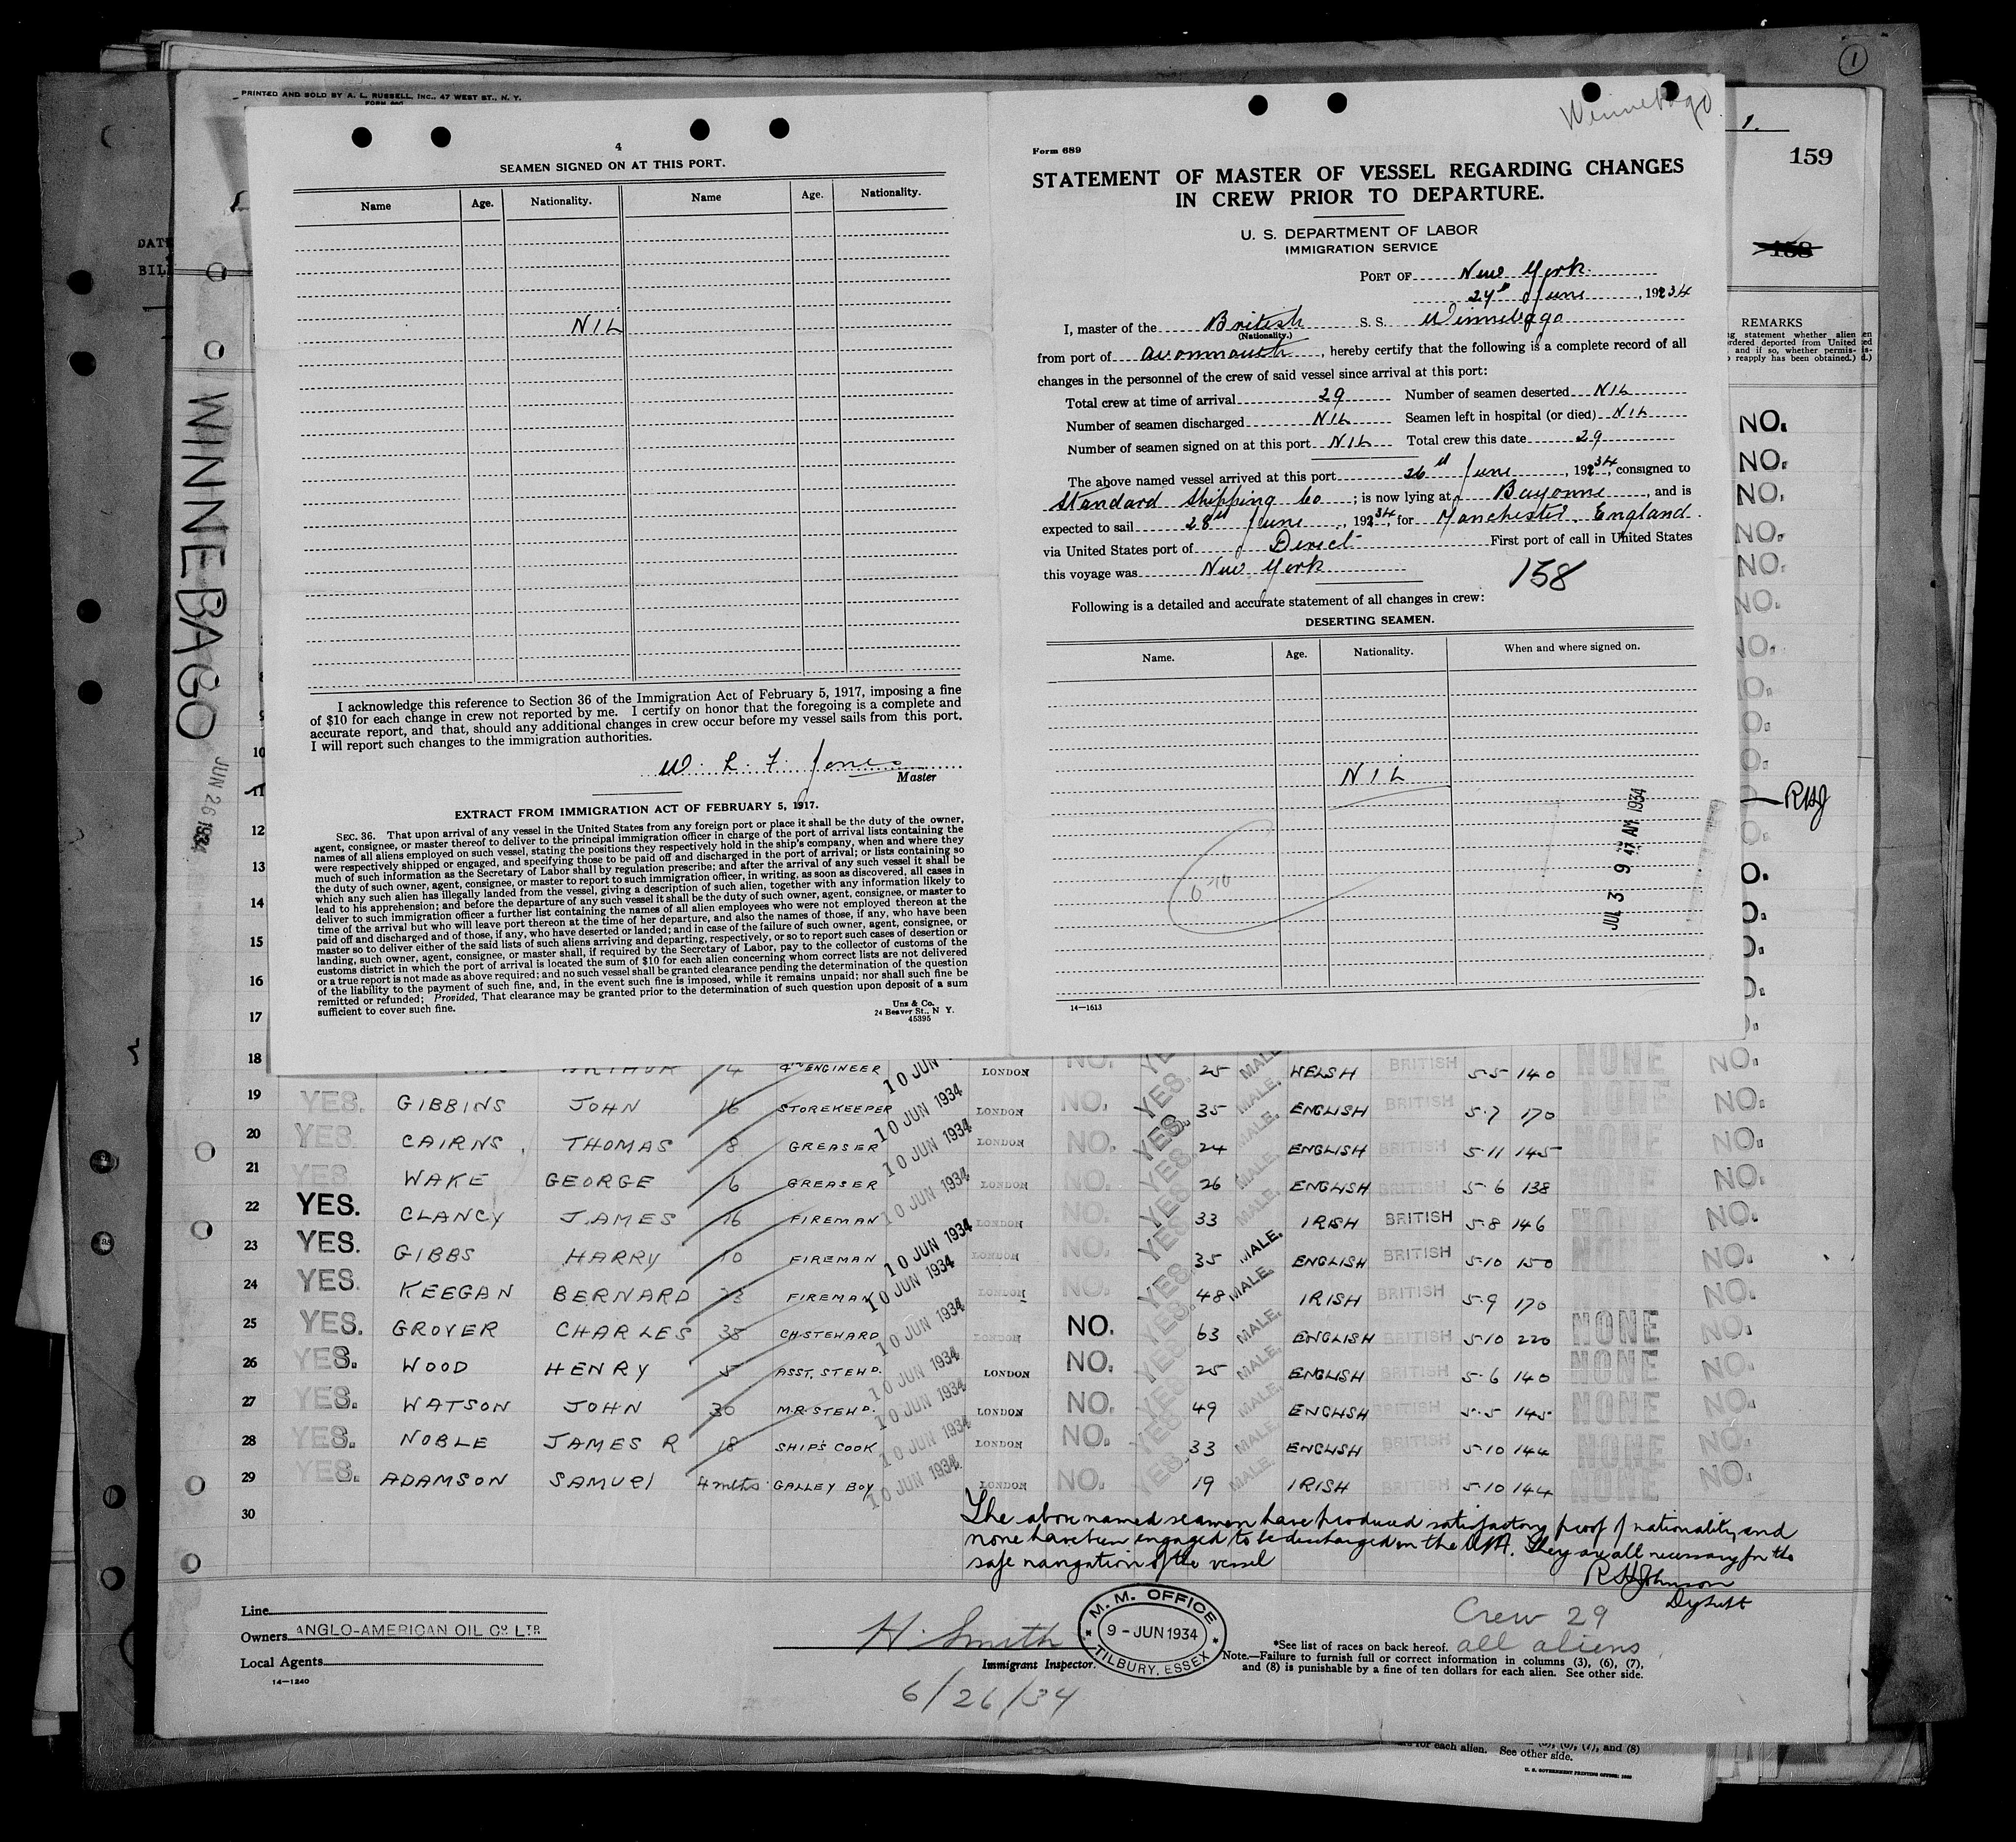 PRINTED AND SOLD BY A. L. RUSSELL, INC., 47 WEST ST., N. Y.
1
1.
159
158
DATE
BILL
REMARKS
WINNEBAGO
JUN 26 1934
4
SEAMEN SIGNED ON AT THIS PORT.
Name Age. Nationality. Name Age. Nationality.
NIL
I acknowledge this reference to Section 36 of the Immigration Act of February 5, 1917, imposing a fine
of $10 for each change in crew not reported by me. I certify on honor that the foregoing is a complete and
accurate report, and that, should any additional changes in crew occur before my vessel sails from this port,
I will report such changes to the immigration authorities.
W. L. F. Jones
Master
EXTRACT FROM IMMIGRATION ACT OF FEBRUARY 5, 1917.
SEC. 36. That upon arrival of any vessel in the United States from any foreign port or place it shall be the duty of the owner,
agent, consignee, or master thereof to deliver to the principal immigration officer in charge of the port of arrival lists containing the
names of all aliens employed on such vessel, stating the positions they respectively hold in the ship's company, when and where they
were respectively shipped or engaged, and specifying those to be paid off and discharged in the port of arrival; or lists containing so
much of such information as the Secretary of Labor shall by regulation prescribe; and after the arrival of any such vessel it shall be
the duty of such owner, agent, consignee, or master to report to such immigration officer, in writing, as soon as discovered, all cases in
which any such alien has illegally landed from the vessel, giving a description of such alien, together with any information likely to
lead to his apprehension; and before the departure of any such vessel it shall be the duty of such owner, agent, consignee, or master to
deliver to such immigration officer a further list containing the names of all alien employees who were not employed thereon at the
time of the arrival but who will leave port thereon at the time of her departure, and also the names of those, if any, who have been
paid off and discharged and of those, if any, who have deserted or landed; and in case of the failure of such owner, agent, consignee, or
master so to deliver either of the said lists of such aliens arriving and departing, respectively, or so to report such cases of desertion or
landing, such owner, agent, consignee, or master shall, if required by the Secretary of Labor, pay to the collector of customs of the
customs district in which the port of arrival is located the sum of $10 for each alien concerning whom correct lists are not delivered
or a true report is not made as above required; and no such vessel shall be granted clearance pending the determination of the question
of the liability to the payment of such fine, and, in the event such fine is imposed, while it remains unpaid; nor shall such fine be
remitted or refunded; Provided, That clearance may be granted prior to the determination of such question upon deposit of a sum
sufficient to cover such fine.
Unz & Co.
24 Beaver St., N Y.
45395
Winnebago
Form 689
STATEMENT OF MASTER OF VESSEL REGARDING CHANGES
IN CREW PRIOR TO DEPARTURE.
U. S. DEPARTMENT OF LABOR
IMMIGRATION SERVICE
PORT OF New York
June, 1934
I, master of the British S. S. Winnebago
(Nationality.)
from port of Avonmouth, hereby certify that the following is a complete record of all
changes in the personnel of the crew of said vessel since arrival at this port:
Total crew at time of arrival 29 Number of seamen deserted NIL
Number of seamen discharged NIL Seamen left in hospital (or died) NIL
Number of seamen signed on at this port NIL Total crew this date 29
The above named vessel arrived at this port 26th June, 1934, consigned to
Standard Shipping Co; is now lying at Bayonne, and is
expected to sail 28th June, 1934, for Manchester. England.
via United States port of Direct First port of call in United States
this voyage was New York
158
Following is a detailed and accurate statement of all changes in crew:
DESERTING SEAMEN.
Name. Age. Nationality. When and where signed on.
NIL
JUL 3 9 47 AM 1934
14—1613
NO.
NO.
NO.
NO.
NO.
NO.
NO.
RHJ
10
11
12
13
14
15
16
17
18 ARTHUR 4 4TH ENGINEER 10 JUN LONDON NO. YES. 25 MALE. WELSH BRITISH 5-5 140 NONE NO.
19 YES. GIBBINS JOHN 16 STOREKEEPER 10 JUN 1934 LONDON NO. YES. 35 MALE. ENGLISH BRITISH 5-7 170 NONE NO.
20 YES. CAIRNS, THOMAS 8 GREASER 10 JUN 1934 LONDON NO. YES. 24 MALE. ENGLISH BRITISH 5-11 145 NONE NO.
21 YES. WAKE GEORGE 6 GREASER 10 JUN 1934 LONDON NO. YES. 26 MALE. ENGLISH BRITISH 5-6 138 NONE NO.
22 YES. CLANCY JAMES 16 FIREMAN 10 JUN 1934 LONDON NO. YES. 33 MALE. IRISH BRITISH 5-8 146 NONE NO.
23 YES. GIBBS HARRY 10 FIREMAN 10 JUN 1934 LONDON NO. YES. 35 MALE. ENGLISH BRITISH 5-10 150 NONE NO.
24 YES. KEEGAN BERNARD FIREMAN 10 JUN 1934 LONDON NO. YES. 48 MALE. IRISH BRITISH 5-9 170 NO.
25 YES. GROVER CHARLES 35 CH. STEWARD 10 JUN 1934 LONDON NO. YES. 63 MALE. ENGLISH BRITISH 5-10 220 NONE NO.
26 YES. WOOD HENRY 5 ASST. STEWD. 10 JUN 1934 LONDON NO. YES. 25 MALE. ENGLISH BRITISH 5-6 140 NONE NO.
27 YES. WATSON JOHN 30 M.R. STEWD. 10 JUN 1934 LONDON NO. YES. 49 MALE. ENGLISH BRITISH 5-5 145 NONE NO.
28 YES. NOBLE JAMES R 18 SHIP'S COOK 10 JUN 1934 LONDON NO. YES. 33 MALE. ENGLISH BRITISH 5-10 144 NONE NO.
29 YES. ADAMSON SAMUEL 4 mths GALLEY BOY 10 JUN 1934 LONDON NO. YES. 19 MALE. IRISH BRITISH 5-10 144 NONE NO.
30
The above named seamen have produced satisfactory proof of nationality and
none have been engaged to be discharged in the USA. They are all necessary for the
safe navigation of the vessel
R H Johnson
Dy Supt
Line
Owners ANGLO-AMERICAN OIL CO LTD
Local Agents
14—1240
H. Smith
Immigrant Inspector.
6/26/34
M. M. OFFICE
9 - JUN 1934
TILBURY, ESSEX
Crew 29
all aliens
*See list of races on back hereof.
Note.—Failure to furnish full or correct information in columns (3), (6), (7),
and (8) is punishable by a fine of ten dollars for each alien. See other side.
for each alien. See other side.
U. S. GOVERNMENT PRINTING OFFICE